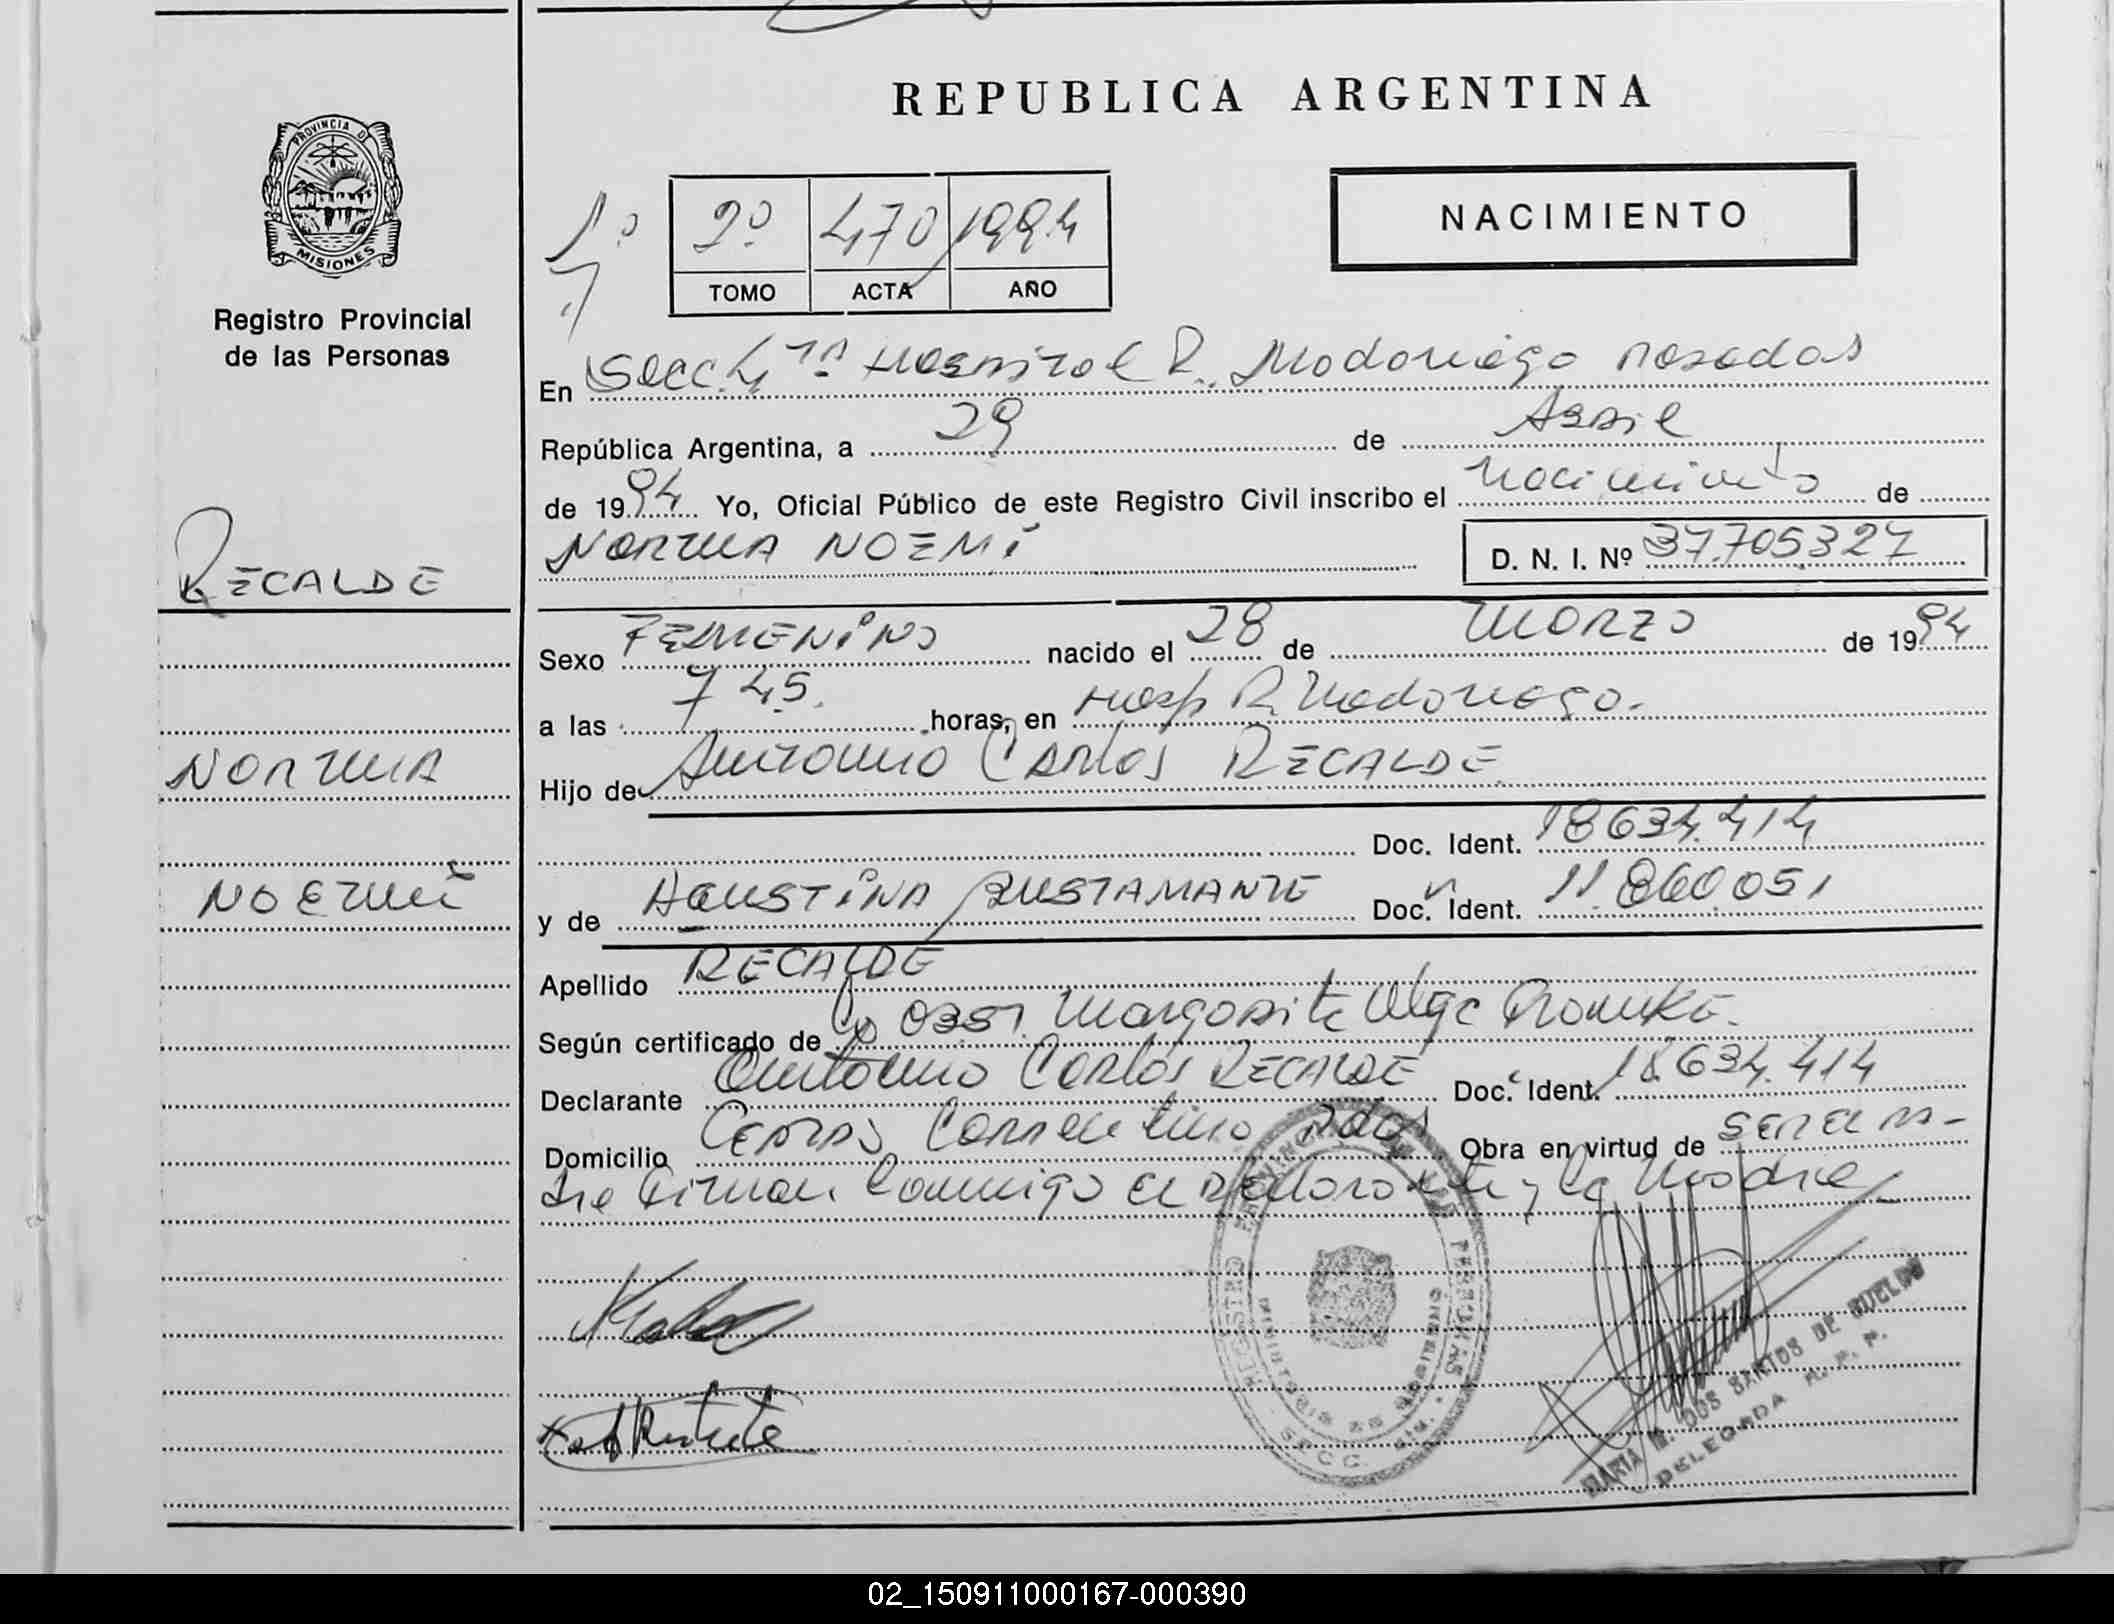 REPUBLICA ARGENTINA
PROVINCIA DE
MISIONES
Registro Provincial
de las Personas
1º 2º 470 1994
TOMO ACTA AÑO
NACIMIENTO
En Secc. 4ta Hospital R. Madariaga Posadas
República Argentina, a 29 de Abril
de 1994 Yo, Oficial Público de este Registro Civil inscribo el nacimiento de
NORMA NOEMí D. N. I. Nº 37.705.327
RECALDE
Sexo FEMENINO nacido el 28 de MARZO de 1994
a las 7 45. horas, en Hosp R. Madariaga.
NORMA
Hijo de Antonio Carlos RECALDE
Doc. Ident. 18.634.414
NOEMí
y de AGUSTINA BUSTAMANTE Doc. Ident. 11.860.051
Apellido RECALDE
Según certificado de 0351 Margarita Olga
Declarante Antonio Carlos RECALDE Doc. Ident. 18.634.414
Domicilio Pdas Obra en virtud de
firman conmigo el declarante y la Madre
REGISTRO PROVINCIAL DE LAS PERSONAS
MINISTERIO DE GOBIERNO
SECC.
MARIA M. DOS SANTOS DE
DELEGADA R. P. P.
02_150911000167-000390